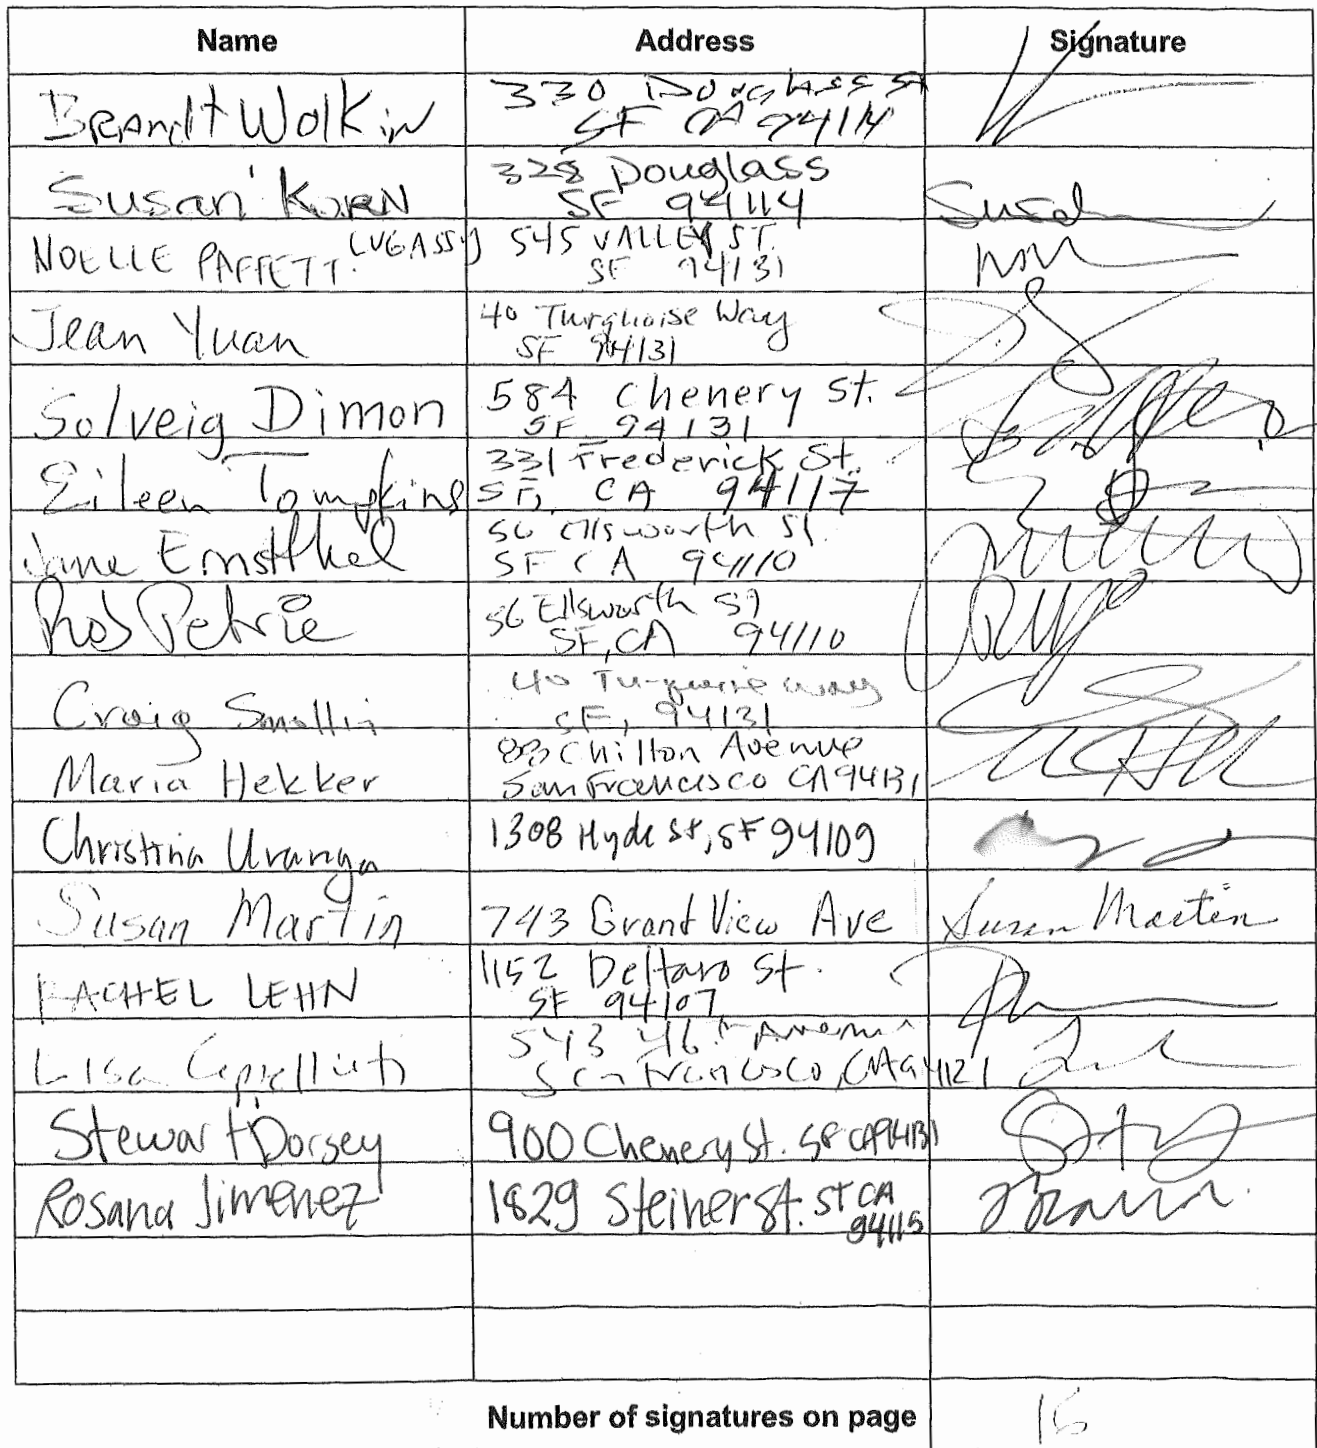 Name Address Signature
Brandt Wolkin 330 Douglass St
SF CA 94114
Susan Korn 328 Douglass
SF 94114
NOELLE PAFFETT (LUGASSY) 545 VALLEY ST.
SF 94131
Jean Yuan 40 Turquoise Way
SF 94131
Solveig Dimon 584 Chenery St.
SF 94131
Eileen Tompkins 331 Frederick St.
SF, CA 94117
Jane Ernsthel 56 Ellsworth St.
SF CA 94110
Rob Petrie 56 Ellsworth St
SF, CA 94110
Craig 40 Way
SF, 94131
Maria Hekker 80 Chilton Avenue
San Francisco CA 94131
Christina Uranga 1308 Hyde St, SF 94109
Susan Martin 743 Grand View Ave Susan Martin
RACHEL LEHN 1152 DeHaro St.
SF 94107
Lisa 543 46th Avenue
San Francisco, CA 94121
Stewart Dorsey 900 Chenery St. SF CA 94131
Rosana Jimenez 1829 Steiner St. SF CA
94115
Number of signatures on page 16